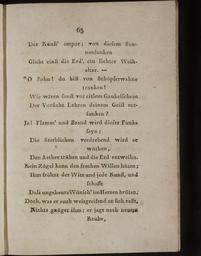 65
Der Kunst' empor; von diesem Son-
nenfunken
Glüht einst die Erd', ein lichter Welt-
alter. —
"O Sohn! du bist von Schöpferwahne
trunken!
Wir wären sonst vor eitlem Gaukelschein
Der Vorsicht Lehren deinem Geist ent-
sunken?
Ja! Flamm' und Brand wird dieser Funke
seyn;
Die Sterblichen verderbend wird er
wüthen,
Den Aether trüben und die Erd entweihn.
Kein Zügel kann den frechen Willen hüten;
Ihm fröhnt der Witz und jede Kunst, und
schaffe
Daß ungeheure Wünsch' im Herzen brüten;
Doch, was er auch weitgreifend an sich rafft,
Nichts gnüget ihm; er jagt nach neuem
Raube,